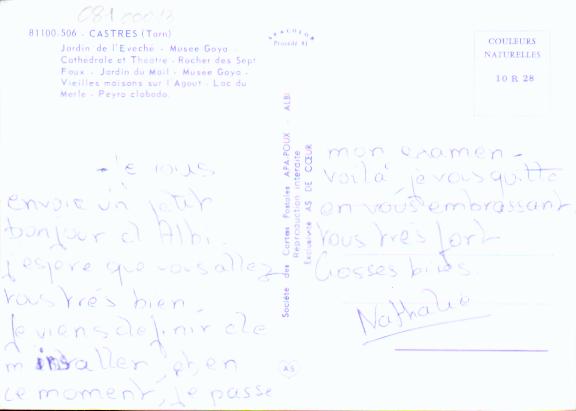 0810013
81100.506 - CASTRES (Tarn)
Jardin de l'Eveche - Musee Goya -
Cathedrale et Theatre - Rocher des Sept
Faux - Jardin du Mail - Musee Goya -
Vieilles maisons sur l'Agout - Lac du
Merle - Peyro clabado.
APACOLOR
Procédé 41
COULEURS
NATURELLES
10 R 28
Société des Cartes Postales APA-POUX - ALBI
Reproduction interdite
Exclusivité AS DE CŒUR
AS
Je vous
envoie un petit
bonjour d'Albi.
J'espère que vous allez
tous très bien.
Je viens de finir de
m'installer, et en
ce moment, je passe
mon examen -
Voilà je vous quitte
en vous embrassant
tous très fort
Grosses bises
Nathalie